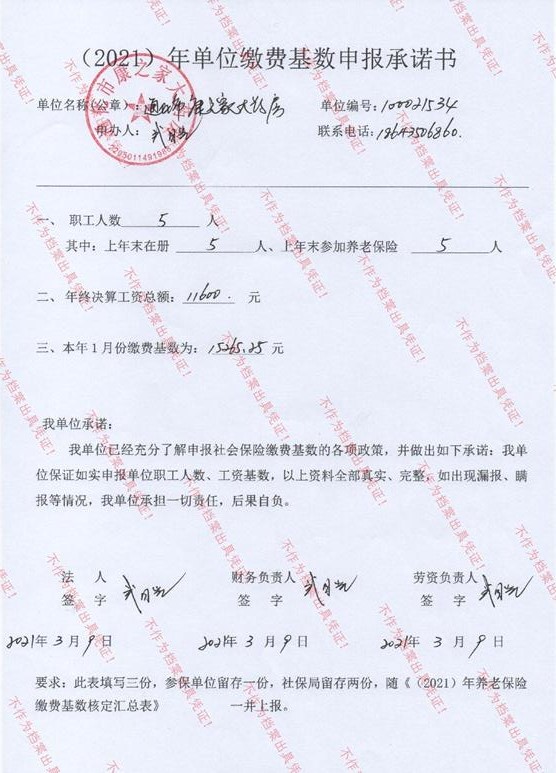 （2021）年单位缴费基数申报承诺书
单位名称(公章)：通化市康之家大药房 单位编号：100021534
申办人： 联系电话：
一、 职工人数 5 人
其中：上年末在册 5 人、上年末参加养老保险 5 人
二、年终决算工资总额：11600. 元
三、本年1月份缴费基数为：15265.25元
我单位承诺：
我单位已经充分了解申报社会保险缴费基数的各项政策，并做出如下承诺：我单
位保证如实申报单位职工人数、工资基数，以上资料全部真实、完整，如出现漏报、瞒
报等情况，我单位承担一切责任，后果自负。
法 人 财务负责人 劳资负责人
签 字 签 字 签 字
2021年3月9日 2021年3月9日 2021年3月9日
要求：此表填写三份，参保单位留存一份，社保局留存两份，随《（2021）年养老保险
缴费基数核定汇总表》 一并上报。
不作为档案出具凭证！